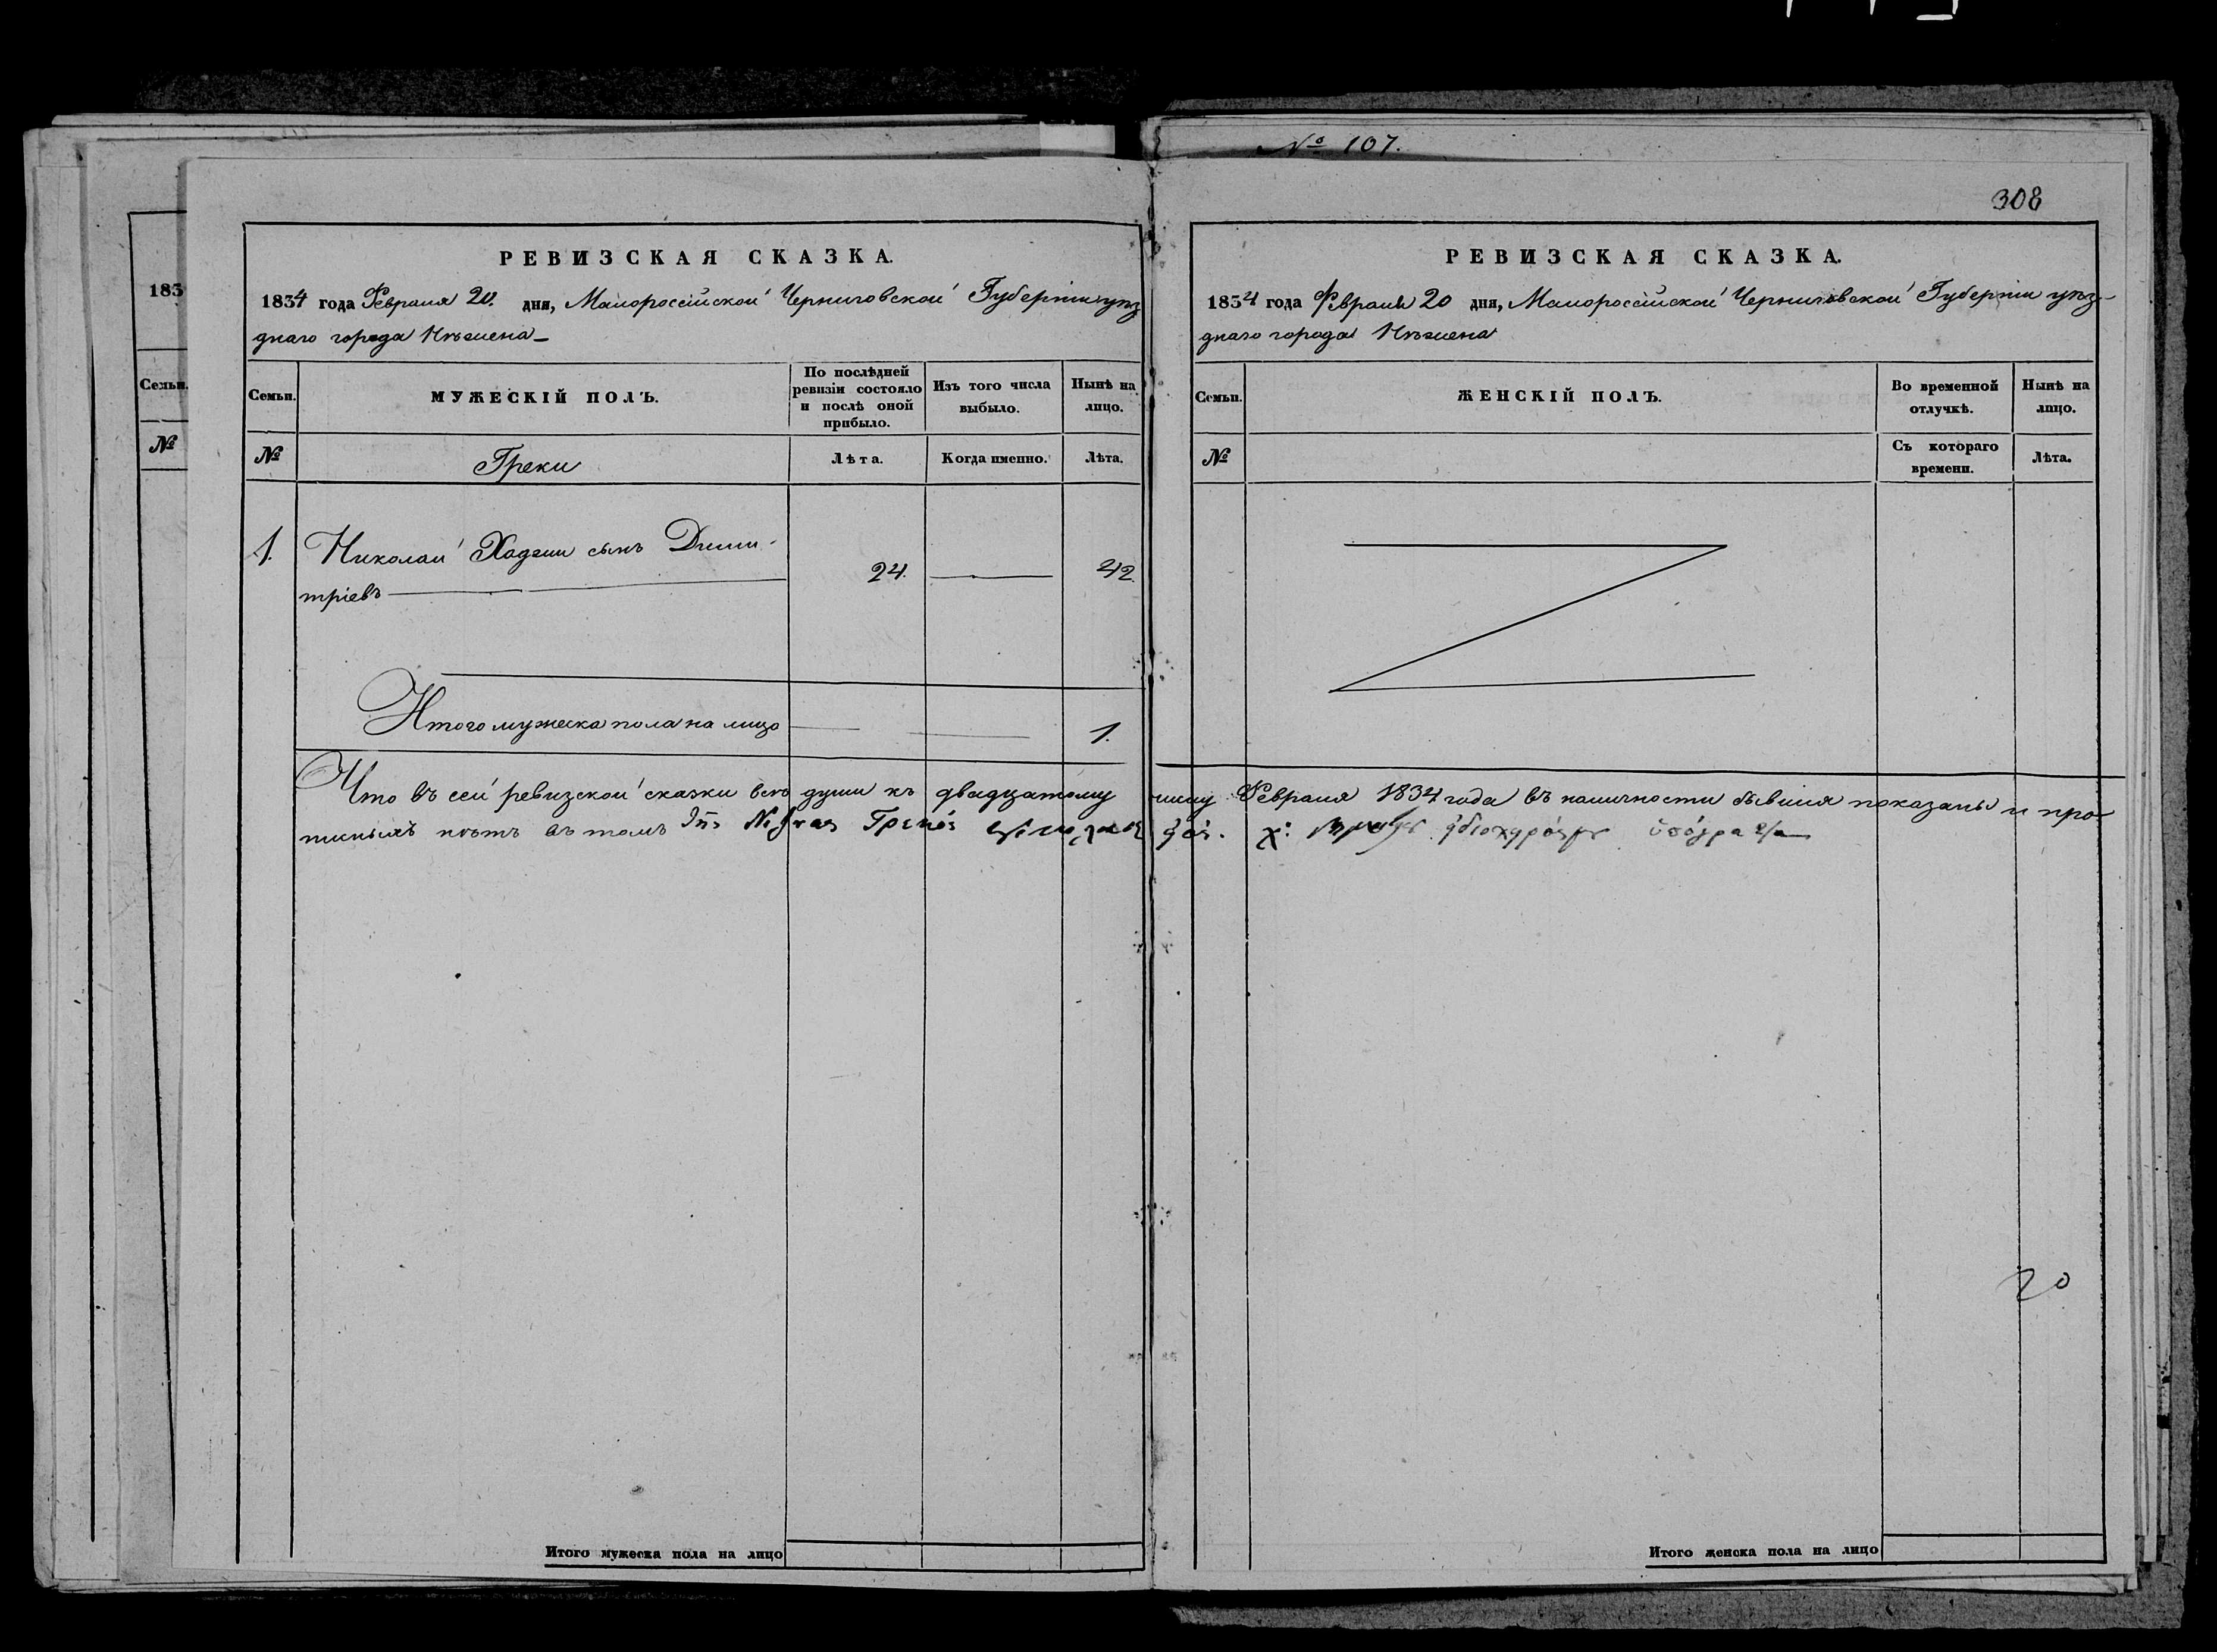 № 107.
308
183
Семьи.
№
РЕВИЗСКАЯ СКАЗКА.
1834 года Февраля 20. дня, Малороссійской Черниговской Губерніи уѣз
днаго города Нѣжена
Семьи.
МУЖЕСКІЙ ПОЛЪ.
По послѣдней ревизіи состояло и послѣ оной прибыло.
Изъ того числа выбыло.
Нынѣ на лицо.
№
Греки
Лѣта.
Когда именно.
Лѣта.
1. Николай Хаджи сынъ Дими-
тріевъ 24. 42.
Итого мужеска пола на лицо 1.
РЕВИЗСКАЯ СКАЗКА.
1834 года Февраля 20 дня, Малороссійской Черниговской Губерніи уѣз-
днаго города Нѣжена
Семьи.
ЖЕНСКІЙ ПОЛЪ.
Во временной отлучкѣ.
Нынѣ на лицо.
№
Съ котораго времени.
Лѣта.
Что въ сей ревизской сказки всѣ души къ двадцатому числу Февраля 1834 года въ наличности бывшія показаны и про-
писныхъ нѣтъ въ томъ
20
Итого мужеска пола на лицо
Итого женска пола на лицо